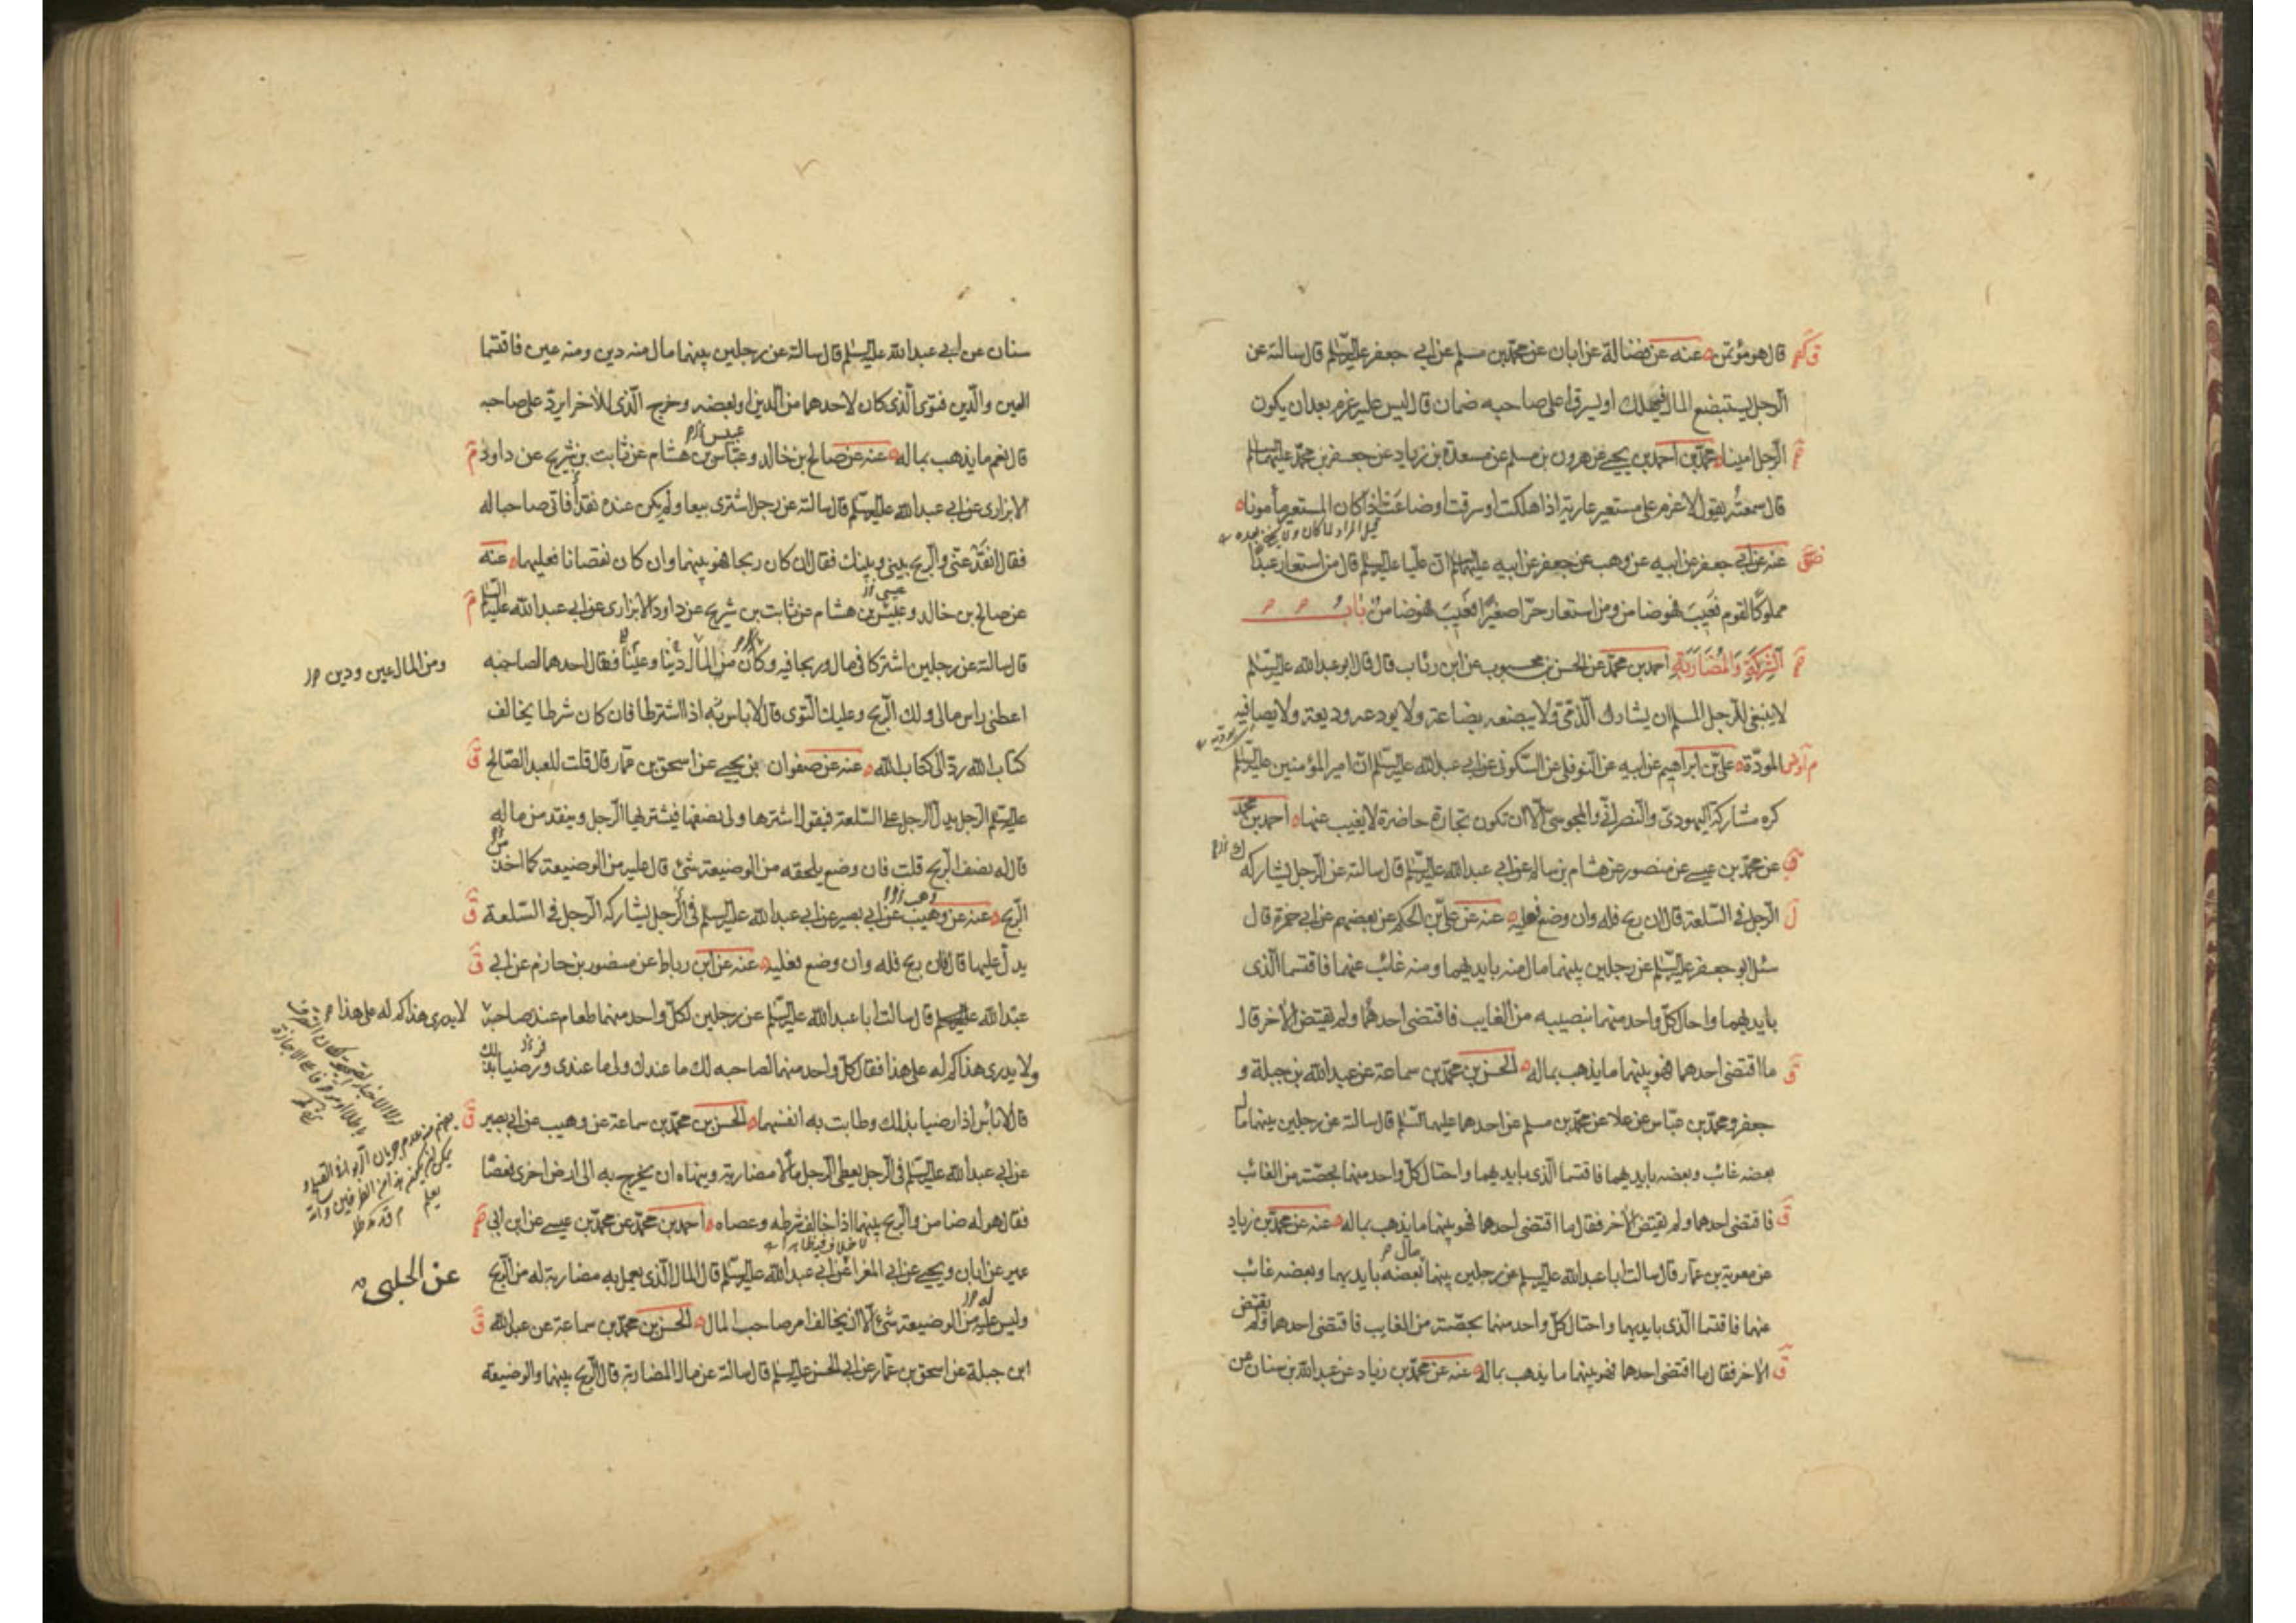 قال هو مؤتمن عنه عن فضالة عن ابان عن محمّد بن مسلم عن ابي جعفر عليه السّلم قال سالته عن
الرّجل يستبضع المال فيهلك او يسرق اعلى صاحبه ضمان قال ليس عليه غرم بعد ان يكون
الرّجل امينا محمّد بن احمد بن يحيى عن هرون بن مسلم عن مسعدة بن زياد عن جعفر بن محمّد عليهما السلم
قال سمعته يقول لا غرم على مستعير عارية اذا هلكت او سرقت او ضاعت اذا كان المستعير مأمونا
عنه عن ابي جعفر عن ابيه عن وهب عن جعفر عن ابيه عليهما السلم انّ عليّا عليه السلم قال من استعار عبدًا
مملوكًا لقوم فعيب فهو ضامن ومن استعار حرّا صغيرًا فعيب فهو ضامن باب
الشركة والمضاربة احمد بن محمّد عن الحسن بن محبوب عن ابن رئاب قال قال ابو عبد الله عليه السّلم
لا ينبغي للرّجل المسلم ان يشارك الذّمّي ولا يبضعه بضاعة ولا يودعه وديعة ولا يصافيه
المودّة علي بن ابراهيم عن ابيه عن النّوفلي عن السّكوني عن ابي عبد الله عليه السّلم انّ امير المؤمنين عليه السّلم
كره مشاركة اليهوديّ والنّصرانيّ والمجوسيّ الّا ان تكون تجارة حاضرة لا يغيب عنها احمد بن محمد
عن محمّد بن عيسى عن منصور عن هشام بن سالم عن ابي عبد الله عليه السّلم قال سالته عن الرّجل يشاركه
الرّجل في السّلعة قال ان ربح فله وان وضع فعليه عنه عن علي بن الحكم عن بعضهم عن ابي حمزة قال
سئل ابو جعفر عليه السّلم عن رجلين بينهما مال منه بايديهما ومنه غائب عنهما فاقتسما الّذى
بايديهما واحال كلّ واحد منهما بنصيبه من الغايب فاقتضى احدهما ولم يقتض الاخر قال
ما اقتضى احدهما فهو بينهما ما يذهب بماله الحسن بن محمّد بن سماعة عن عبد الله بن جبلة و
جعفر ومحمّد بن عبّاس عن علا عن محمّد بن مسلم عن احدهما عليهما السّلم قال سالته عن رجلين بينهما مال
بعضه غائب وبعضه بايديهما فاقتسما الّذى بايديهما واحتال كلّ واحد منهما بحصّته من الغائب
فاقتضى احدهما ولم يقتض الاخر فقال ما اقتضى احدهما فهو بينهما ما يذهب بماله عنه عن محمّد بن زياد
عن معوية بن عمّار قال سالت ابا عبد الله عليه السلم عن رجلين بينهما مال بعضه بايديهما وبعضه غائب
عنهما فاقتسما الّذى بايديهما واحتال كلّ واحد منهما بحصّته من الغايب فاقتضى احدهما ولم يقتض
الاخر فقال ما اقتضى احدهما فهو بينهما ما يذهب بماله عنه عن محمّد بن زياد عن عبد الله بن سنان عن
سنان عن ابي عبد الله عليه السلم قال سالته عن رجلين بينهما مال منه دين ومنه عين فاقتسما
العين والّدين فتوى الّذى كان لاحدهما من الّدين او بعضه وخرج الّذى للأخر ايردّ على صاحبه
قال نعم ما يذهب بماله عنه عن صالح بن خالد وعبّاس بن هشام عن ثابت بن شريح عن داود
الابزارى عن ابي عبد الله عليه السلم قال سالته عن رجل اشترى بيعا ولم يكن عنده نقد فاتى صاحبا له
فقال انقد عنّى والرّبح بينى وبينك فقال ان كان ربحا فهو بينهما وان كان نقصانا فعليهما عنه
عن صالح بن خالد وعبيس بن هشام عن ثابت بن شريح عن داود الابزارى عن ابي عبد الله عليه السلم
قال سالته عن رجلين اشتركا في مال وربحا فيه وكان من المال دينا وعينًا فقال احدهما لصاحبه
ومن المال عين ودين
اعطنى راس مالى ولك الرّبح وعليك التّوى قال لا باس به اذا اشترطا فان كان شرطا يخالف
كتاب الله ردّ الى كتاب الله عنه عن صفوان بن يحيى عن اسحق بن عمّار قال قلت للعبد الصّالح
عليه السّلم الرّجل يدلّ الرجل على السّلعة فيقول اشترها ولى نصفها فيشتريها الرّجل وينقد من ماله
قال له نصف الرّبح قلت فان وضع يلحقه من الوضيعة شئ قال عليه من الوضيعة كما اخذ من
الرّبح عنه عن وهيب عن ابي بصير عن ابي عبد الله عليه السلم في الرّجل يشاركه الرّجل في السّلعة
يدلّ عليها قال فان ربح فله وان وضع فعليه عنه عن ابن رباط عن منصور بن حازم عن ابي
عبد الله عليه السلم قال سالت ابا عبد الله عليه السّلم عن رجلين لكلّ واحد منهما طعام عند صاحبه
لا يدرى هذا كم له على هذا
ولا يدرى هذا كم له على هذا فقال كلّ واحد منهما لصاحبه لك ما عندك ولى ما عندى ورضيا بذلك
قال لا بأس اذا رضيا بذلك وطابت به انفسهما الحسن بن محمّد بن سماعة عن وهيب عن ابي بصير
عن ابي عبد الله عليه السّلم في الرّجل يعطى الرّجل مالا مضاربة وينهاه ان يخرج به الى ارض اخرى فعصا
فقال هو له ضامن والرّبح بينهما اذا خالف شرطه وعصاه احمد بن محمّد عن محمّد بن عيسى عن ابن ابي
عمير عن ابان ويحيى عن ابي المغرا عن ابي عبد الله عليه السّلم قال المال الّذى يعمل به مضاربة له من الرّبح
عن الحلبى
وليس عليه من الوضيعة شئ الّا ان يخالف امر صاحب المال الحسن بن محمّد بن سماعة عن عبد الله
ابن جبلة عن اسحق بن عمّار عن ابي الحسن عليه السلم قال سالته عن مال المضاربة قال الرّبح بينهما والوضيعة